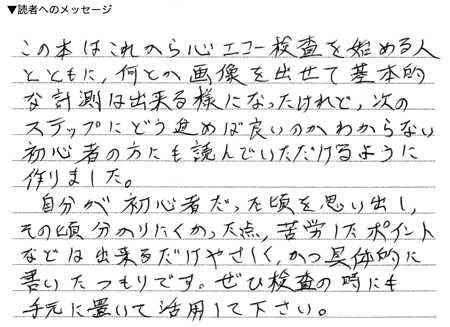 ▼読者へのメッセージ
この本はこれから心エコー検査を始める人
とともに、何とか画像を出せて基本的
な計測は出来る様になったけれど、次の
ステップにどう進めば良いのかわからない
初心者の方にも読んでいただけるように
作りました。
自分が初心者だった頃を思い出し、
その頃分かりにくかった点、苦労したポイント
などは出来るだけやさしく、かつ具体的に
書いたつもりです。ぜひ検査の時にも
手元に置いて活用して下さい。